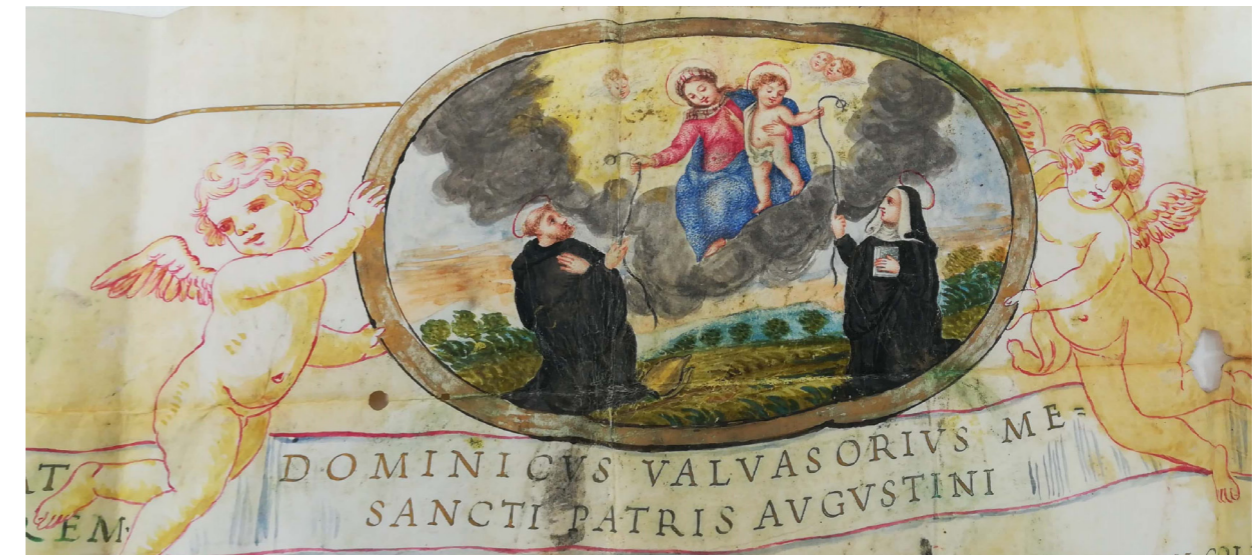 AT
REM
DOMINICVS VALVASORIVS ME=
SANCTI PATRIS AVGVSTINI